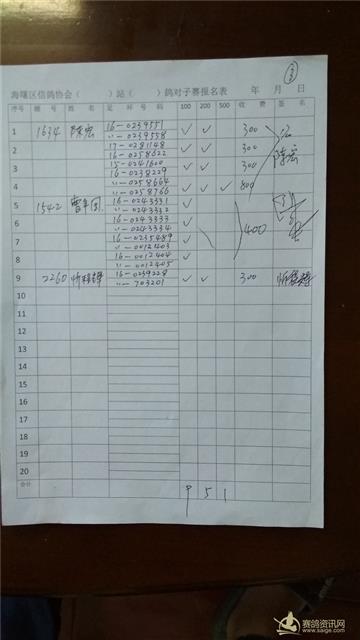 ③
海曙区信鸽协会（ ）站（ ）鸽对子赛报名表 年 月 日
序号 棚号 姓名 足环号码 100 200 500 收费 签名
1 1634 陈宏 16-0239551 ✓ ✓ 300
〃-0239558
2 17-0281148 ✓ ✓ 300 陈宏
16-0258622
3 15-0241600 ✓ ✓ 300
16-0238229
4 〃-0258664 ✓ ✓ ✓ 800
〃-0258766
5 1542 16-0243331 ✓
〃-0243332
6 16-0243333 ✓ 400
〃-0243334
7 16-0235489 ✓
〃-0012403
8 16-0012404 ✓
〃-0012405
9 2260 16-0239228 ✓ ✓ 300
〃-703201
10
11
12
13
14
15
16
17
18
19
20
合计 9 5 1
赛鸽资讯网
www.saige.com